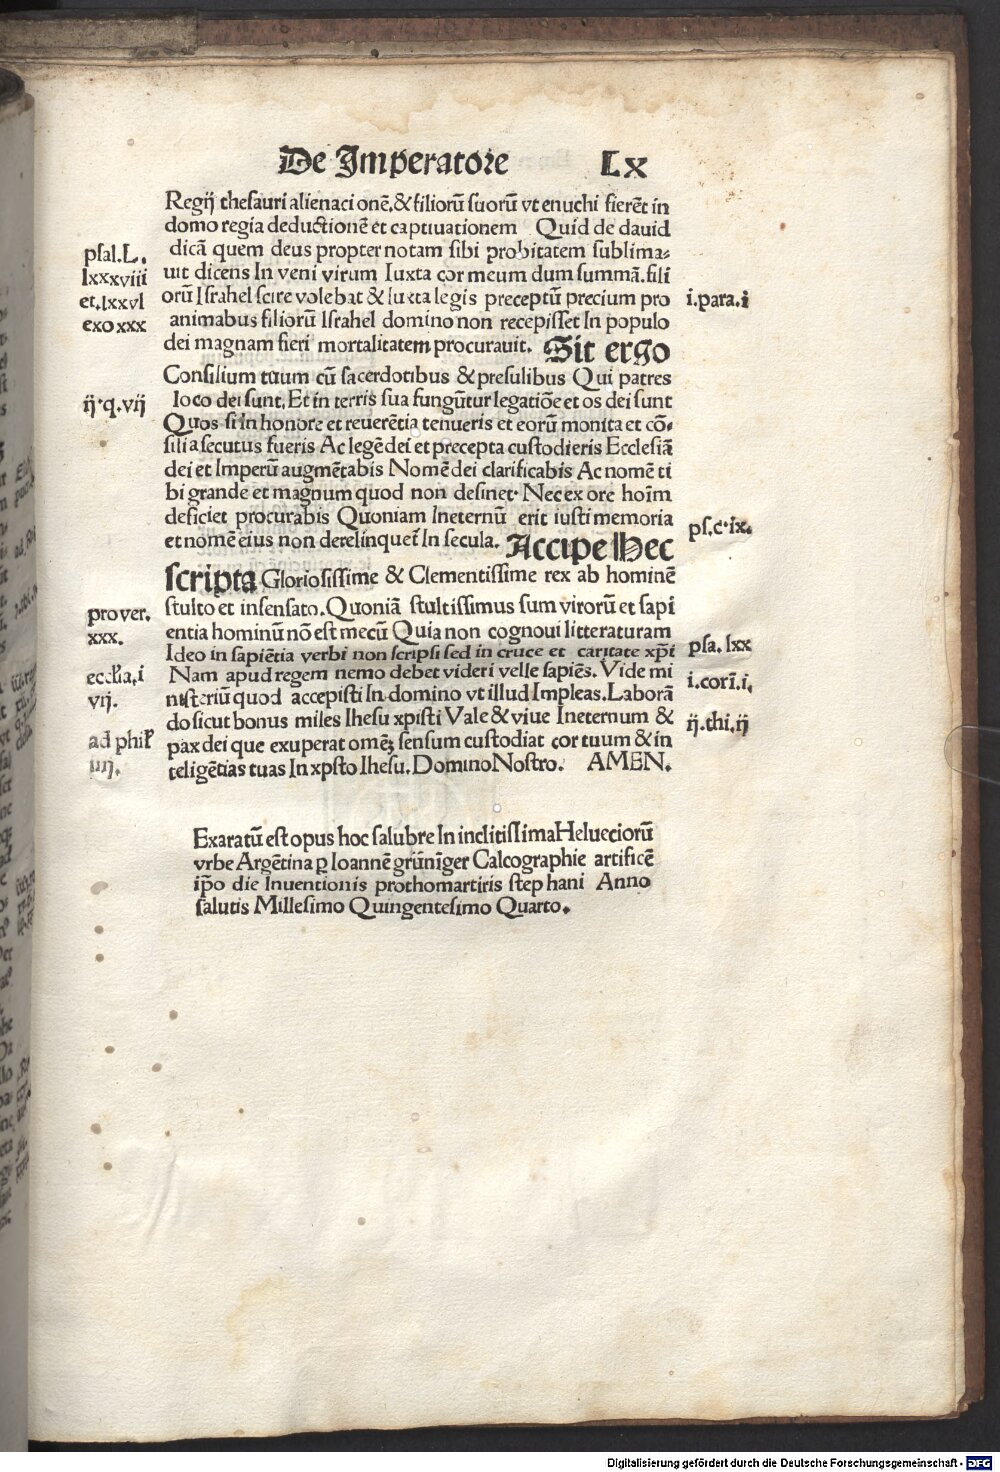 De Imperatore LX
Regij thesauri alienaci onē.&filiorū suorū vt enuchi fierēt in
domo regia deductionē et captiuationem Quid de dauid
dicā quem deus propter notam sibi probitatem sublima-
uit dicens In veni virum Iuxta cor meum dum summā.fili
orū Israhel scire volebat & Iuxta legis preceptū precium pro
animabus filiorū Israhel domino non recepisset In populo
dei magnam fieri mortalitatem procurauit. Sit ergo
Consilium tuum cū sacerdotibus & presulibus Qui patres
loco dei sunt. Et in terris sua fungūtur legatiōe et os dei sunt
Quos si in honore et reuerētia tenueris et eorū monita et cō-
silia secutus fueris Ac legē dei et precepta custodieris Ecclesiā
dei et Imperū augmētabis Nomē dei clarificabis Ac nomē ti
bi grande et magnum quod non desinet. Nec ex ore hoīm
deficiet procurabis Quoniam Ineternū erit iusti memoria
et nomē eius non derelinquet̄ In secula. Accipe Hec
scripta Gloriosissime & Clementissime rex ab hominē
stulto et insensato. Quoniā stultissimus sum virorū et sapi
entia hominū nō est mecū Quia non cognoui litteraturam
Ideo in sapiētia verbi non scripsi sed in cruce et caritate xp̄i
Nam apud regem nemo debet videri velle sapiēs. Vide mi
nisteriū quod accepisti In domino vt illud Impleas. Laborā
do sicut bonus miles Ihesu xpisti Vale & viue Ineternum &
pax dei que exuperat omēʒ sensum custodiat cor tuum & in
teligētias tuas In xpsto Ihesu. Domino Nostro. AMEN.
psal.L.
lxxxviii
et.lxxvl
exo xxx
ij.q.vij
prouer.
xxx.
vij.
ad phil'
iiij.
i.para.i
ps.c.ix.
psa.lxx
i.corī.i.
ij.thi.ij
Exaratū est opus hoc salubre In inclitissima Helueciorū
vrbe Argētina ꝑ Ioannē grūnīger Calcographie artificē
ip̄o die Inuentionis prothomartiris step hani Anno
salutis Millesimo Quingentesimo Quarto.
Digitalisierung gefördert durch die Deutsche Forschungsgemeinschaft - DFG